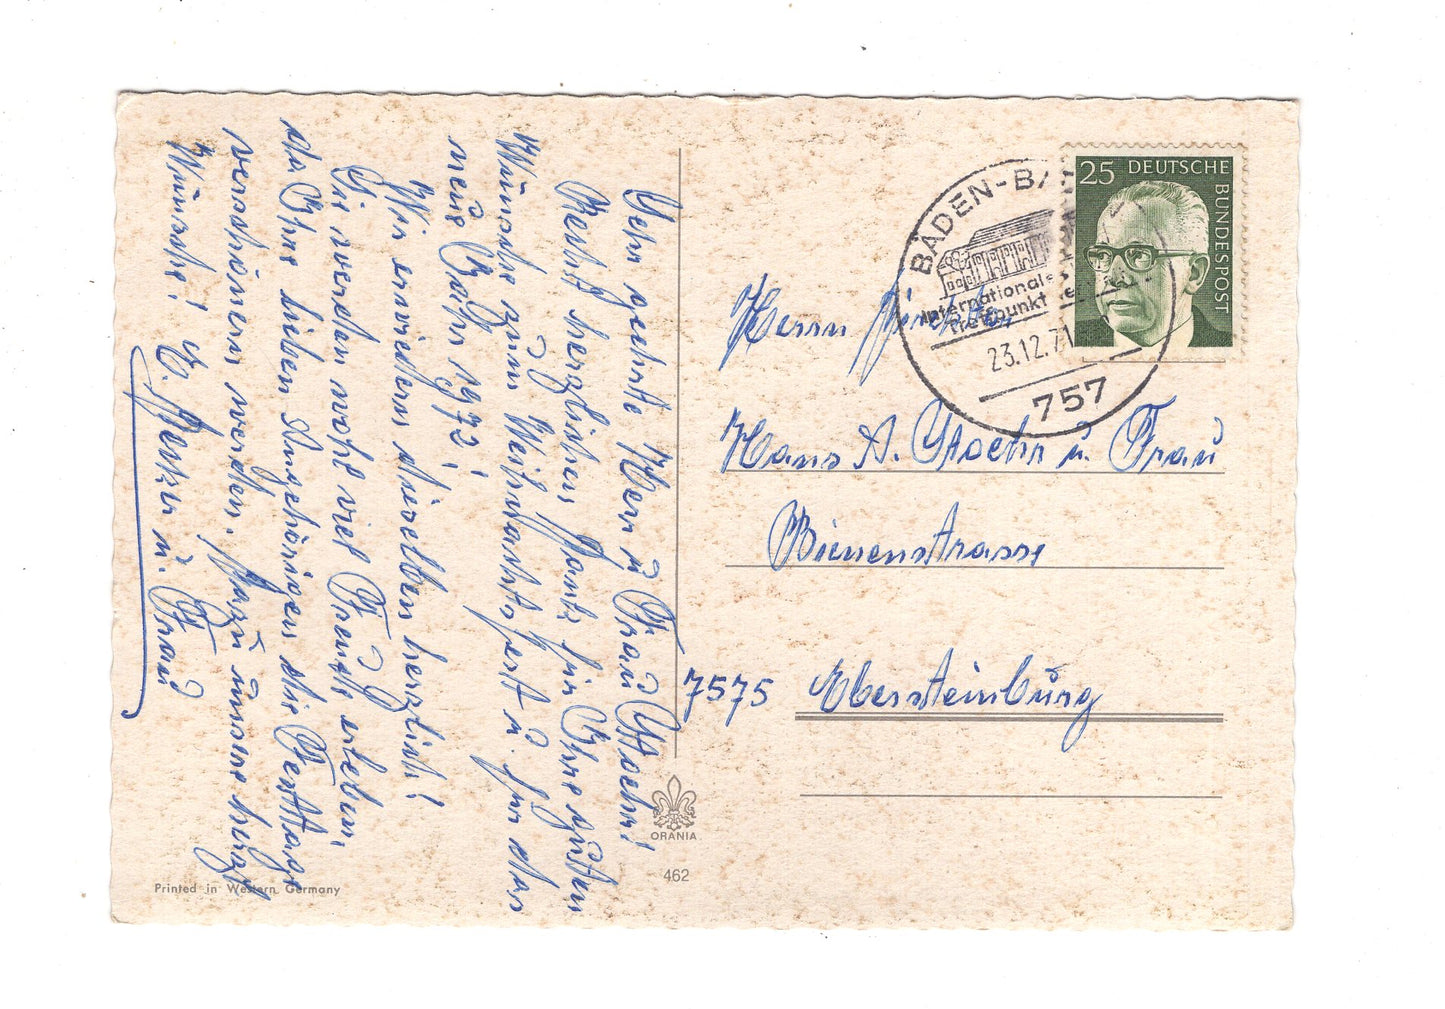 Sehr geehrte Herr u. Frau Stoehr!
Recht herzlichen Dank für Ihre guten
Wünsche zum Weihnachtsfest u. für das
neue Jahr 1972!
Wir erwidern dieselben herzlich!
Sie werden wohl viel Freude erleben
da Ihre lieben Angehörigen die Festtage
verschönern werden. Dazu unsere herzl
Wünsche! E. u. Frau
Printed in Western Germany
ORANIA
462
25 DEUTSCHE BUNDESPOST
BADEN-BA
Internationaler
Treffpunkt
23.12.71
757
Herrn
Hans A. Stoehr u. Frau
Bienenstrasse
7575 Ebersteinburg